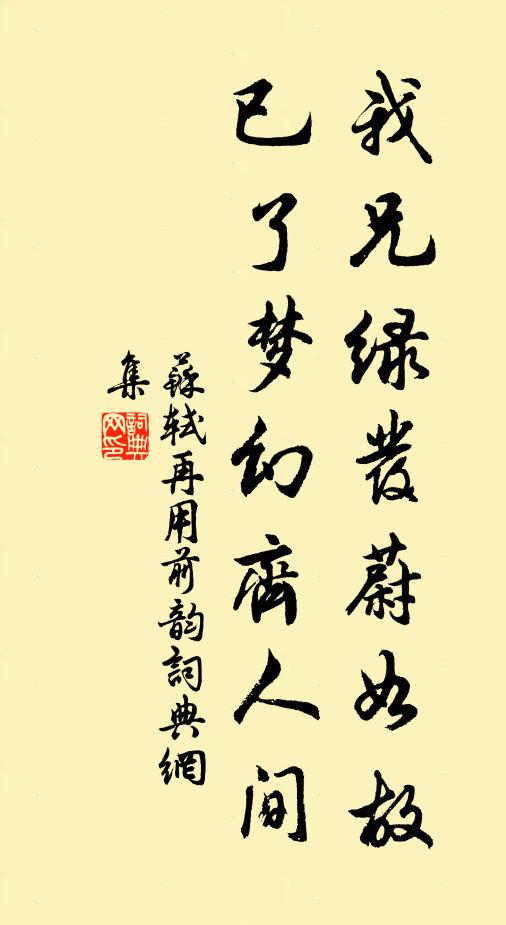 我兄绿发蔚如故
已了梦幻齊人间
蘇轼再用前韵詞典網
集
詞典網印